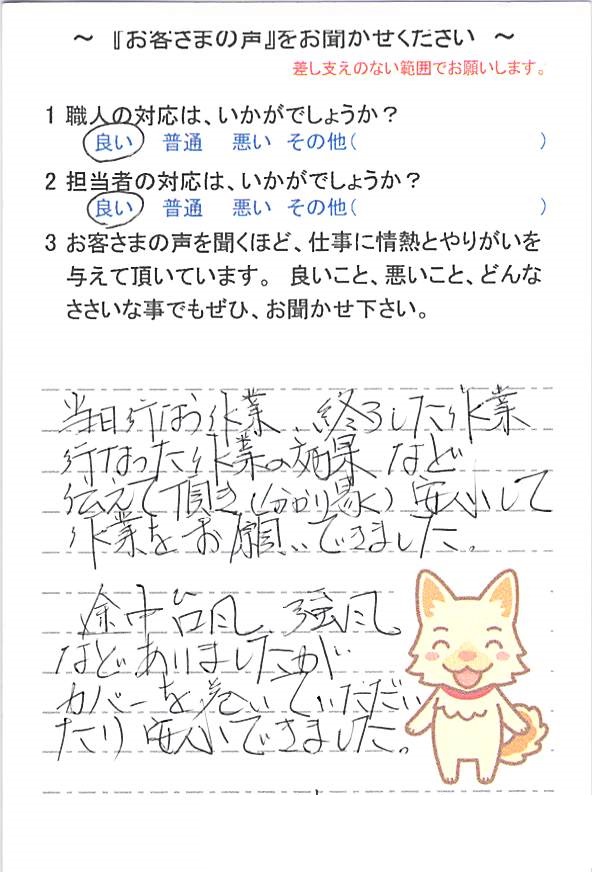 ～ 『お客さまの声』をお聞かせください ～
差し支えのない範囲でお願いします。
1 職人の対応は、いかがでしょうか？
良い 普通 悪い その他( )
2 担当者の対応は、いかがでしょうか？
良い 普通 悪い その他( )
3 お客さまの声を聞くほど、仕事に情熱とやりがいを
与えて頂いています。 良いこと、悪いこと、どんな
ささいな事でもぜひ、お聞かせ下さい。
当日行なう作業、終了した作業
行なった作業の効果 など
伝えて頂き(分かり易く)安心して
作業をお願いできました。
途中台風 強風
などありましたが
カバーを巻いていただい
たり 安心できました。